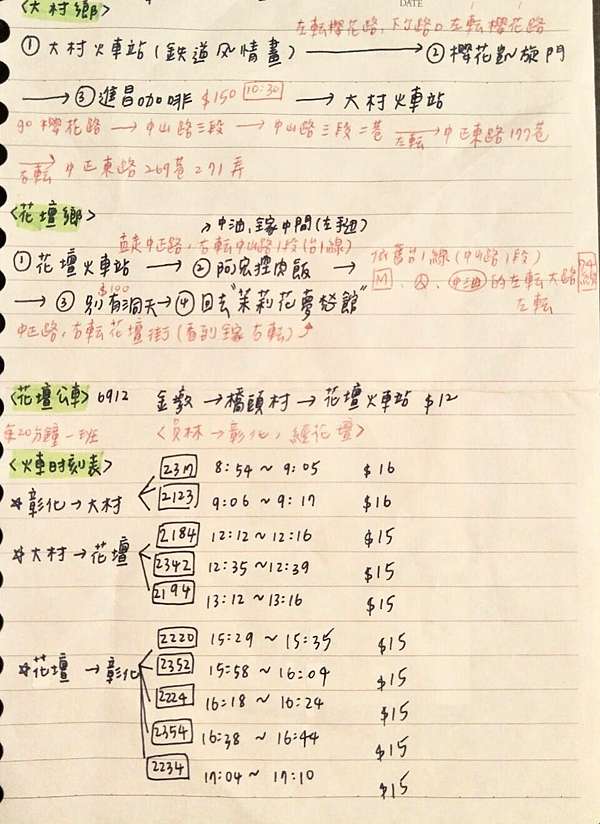 <大村鄉>
DATE
左転櫻花路,下個路口左転櫻花路
① 大村火車站(鉄道风情畫) → ② 櫻花凱旋門
→ ③ 進昌咖啡 $150 10:30 → 大村火車站
90 櫻花路 → 中山路三段 → 中山路三段二巷 左転 中正東路177巷
右転 中正東路269巷271弄
<花壇鄉>
中油,鎵中間(左手边)
直走中正路,右転中山路1段(台1線)
① 花壇火車站 → ② 阿宏控肉飯 →
依舊台1線(中山路1段)
M、Q、中油的左転大路
左転
$100
→ ③ 別有洞天 → ④ 回去"茉莉花夢想館"
中正路,右転花壇街(看到鎵右転)
<花壇公車> 6912 金墩 → 橋頭村 → 花壇火車站 $12
每20分鐘一班 <員林 → 彰化,經花壇>
<火車時刻表>
2317 8:54 ~ 9:05 $16
*彰化 → 大村
2123 9:06 ~ 9:17 $16
2184 12:12 ~ 12:16 $15
*大村 → 花壇
2342 12:35 ~ 12:39 $15
2194 13:12 ~ 13:16 $15
2220 15:29 ~ 15:35 $15
*花壇 → 彰化
2352 15:58 ~ 16:04 $15
2224 16:18 ~ 16:24 $15
2354 16:38 ~ 16:44 $15
2234 17:04 ~ 17:10 $15